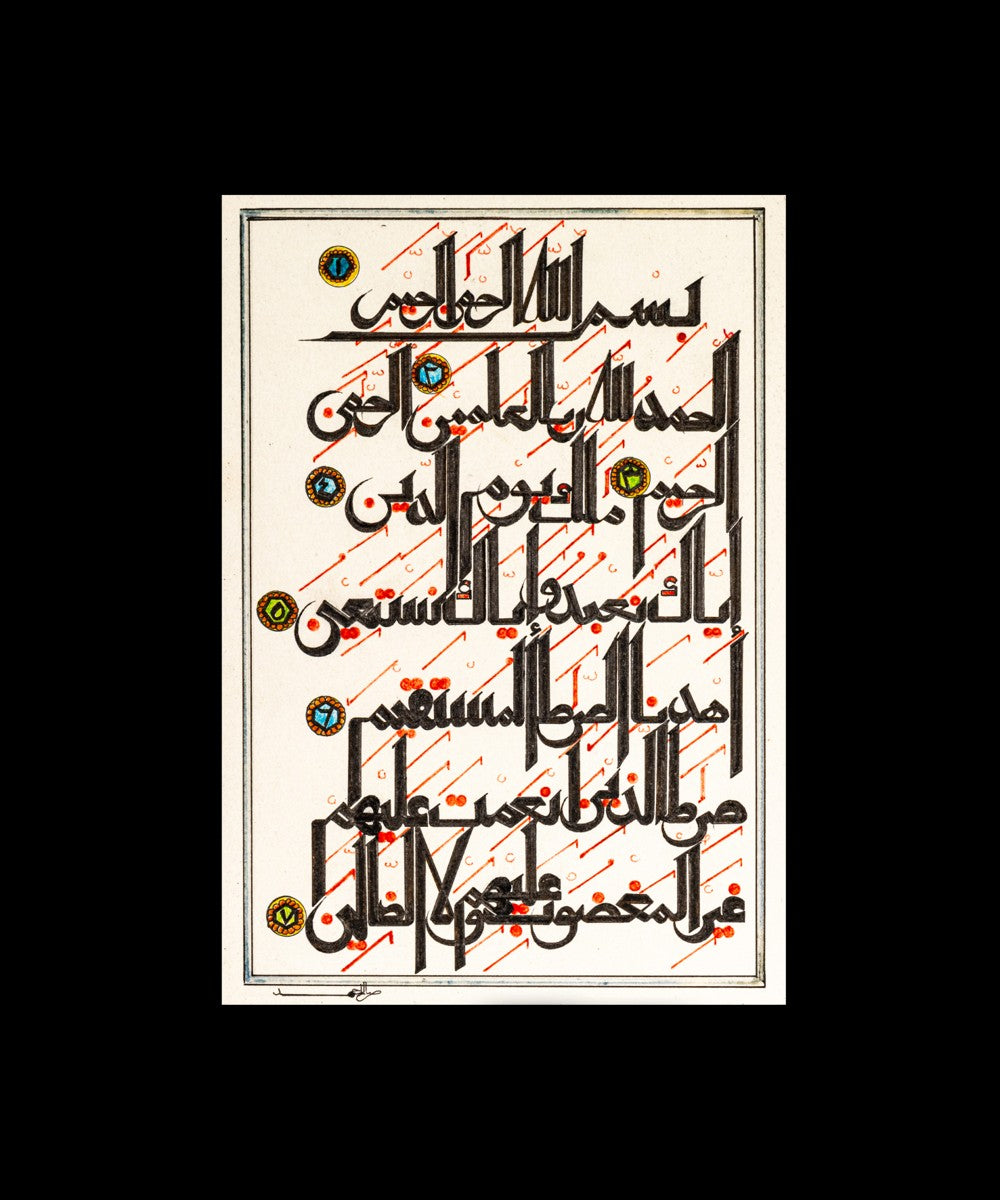 بسم الله الرحمن الرحيم ١
الحمد لله رب العلمين ٢ الرحمن
الرحيم ٣ ملك يوم الدين ٤
إياك نعبد وإياك نستعين ٥
أهدنا الصرط المستقيم ٦
صرط الذين أنعمت عليهم
غير المغضوب عليهم ولا الضالين ٧